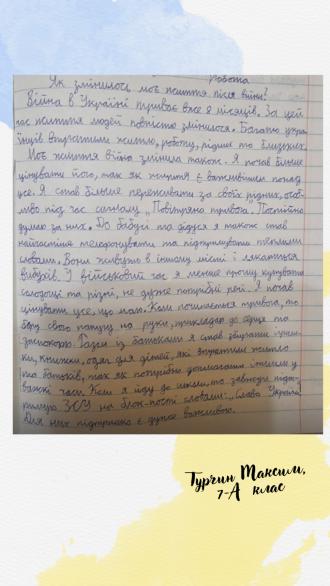 Робота
Як змінилось моє життя після війни?
Війна в Україні триває вже 8 місяців. За цей
час життя людей повністю змінилося. Багато укра
їнців втратили житло, роботу, рідних та близьких.
Моє життя війна змінила також. Я почав більше
цінувати його, так як життя є важливішим понад
усе. Я став більше переживати за своїх рідних, особ-
ливо під час сигналу „Повітряна тривога". Постійно
думаю за них. До бабусі та дідуся я також став
частіше телефонувати та підтримувати теплими
словами. Вони живуть в іншому місті і лякаються
вибухів. У військовий час я менше прошу купувати
солодощі та різні, не дуже потрібні речі. Я почав
цінувати усе, що маю. Коли починається тривога, то
беру свого папугу на руки, прикладаю до серця та
заспокоюю. Разом із батьками я став збирати іграш-
ки, книжки, одяг для дітей, які втратили житло
та батьків, так як потрібно допомагати іншим у
важкі часи. Коли я йду до школи, то завжди підт-
римую ЗСУ на блок-пості словами: „Слава Україні!
Для них підтримка є дуже важливою.
Турчин Максим,
7-А клас